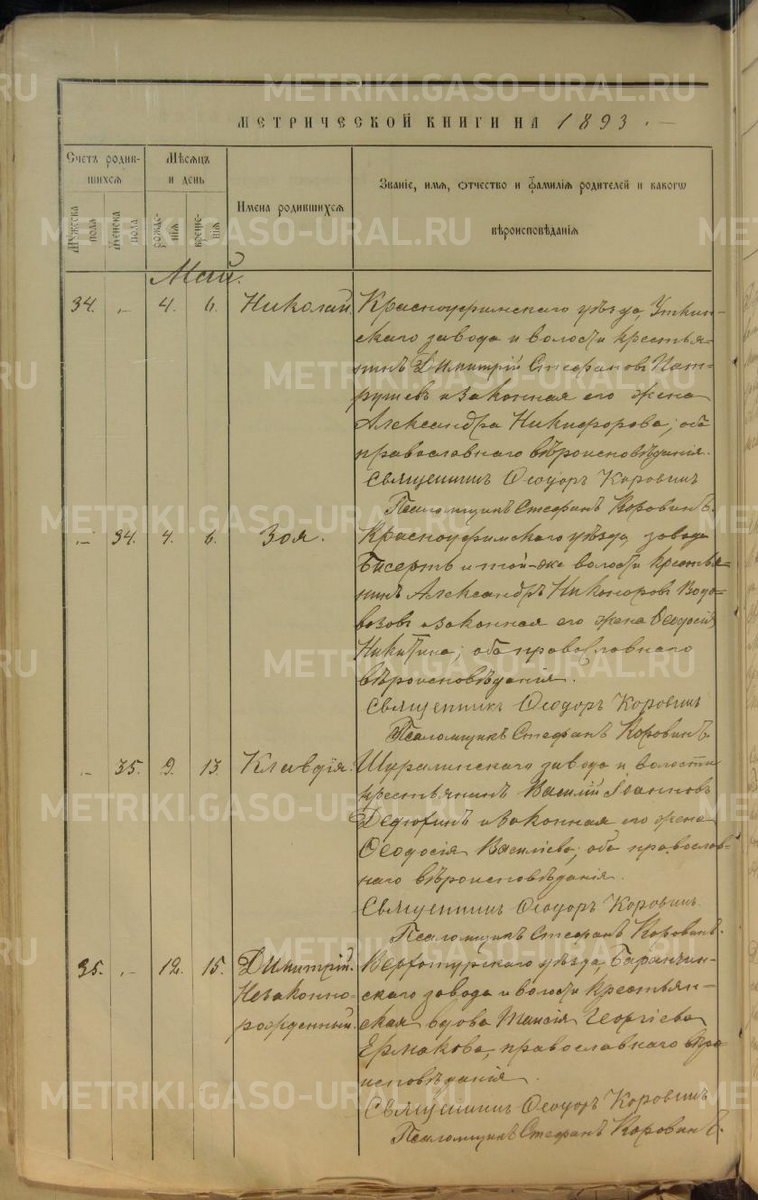 МЕТРИЧЕСКОЙ КНИГИ НА 1893.
Счетъ родив-
шихся
Мѣсяцъ
и день
Имена родившихся
Званіе, имя, отчество и фамилія родителей и какого
вѣроисповѣданія
Мужеска
пола
Женска
пола
рожде-
нія
креще-
нія
Май.
34. „ 4. 6. Николай. Красноуфимскаго уѣзда, Уткин-
скаго завода и волости крестья-
нинъ Димитрій Стефановъ Пат-
рушевъ и законная его жена
Александра Никифорова; оба
православнаго вѣроисповѣданія.
Священникъ Ѳеодоръ Коровинъ
Псаломщикъ Стефанъ Коровинъ.
„ 34. 4. 6. Зоя. Красноуфимскаго уѣзда, завода
Бисерть и той-же волости крестья-
нинъ Александръ Никоноровъ Водо-
возовъ и законная его жена Ѳеодосія
Никитина; оба православнаго
вѣроисповѣданія.
Священникъ Ѳеодоръ Коровинъ
Псаломщикъ Стефанъ Коровинъ.
„ 35. 9. 13. Клавдія. Шуралинскаго завода и волости
крестьянинъ Василій Іоанновъ
Дедюхинъ и законная его жена
Ѳеодосія Васильева; оба православ-
наго вѣроисповѣданія.
Священникъ Ѳеодоръ Коровинъ
Псаломщикъ Стефанъ Коровинъ.
35. „ 12. 15. Димитрій. Верхотурскаго уѣзда, Баранчин-
Незаконно- скаго завода и волости крестьян-
рожденный. ская вдова Таисія Георгіева
Ермакова, православнаго вѣро-
исповѣданія.
Священникъ Ѳеодоръ Коровинъ
Псаломщикъ Стефанъ Коровинъ.
METRIKI.GASO-URAL.RU